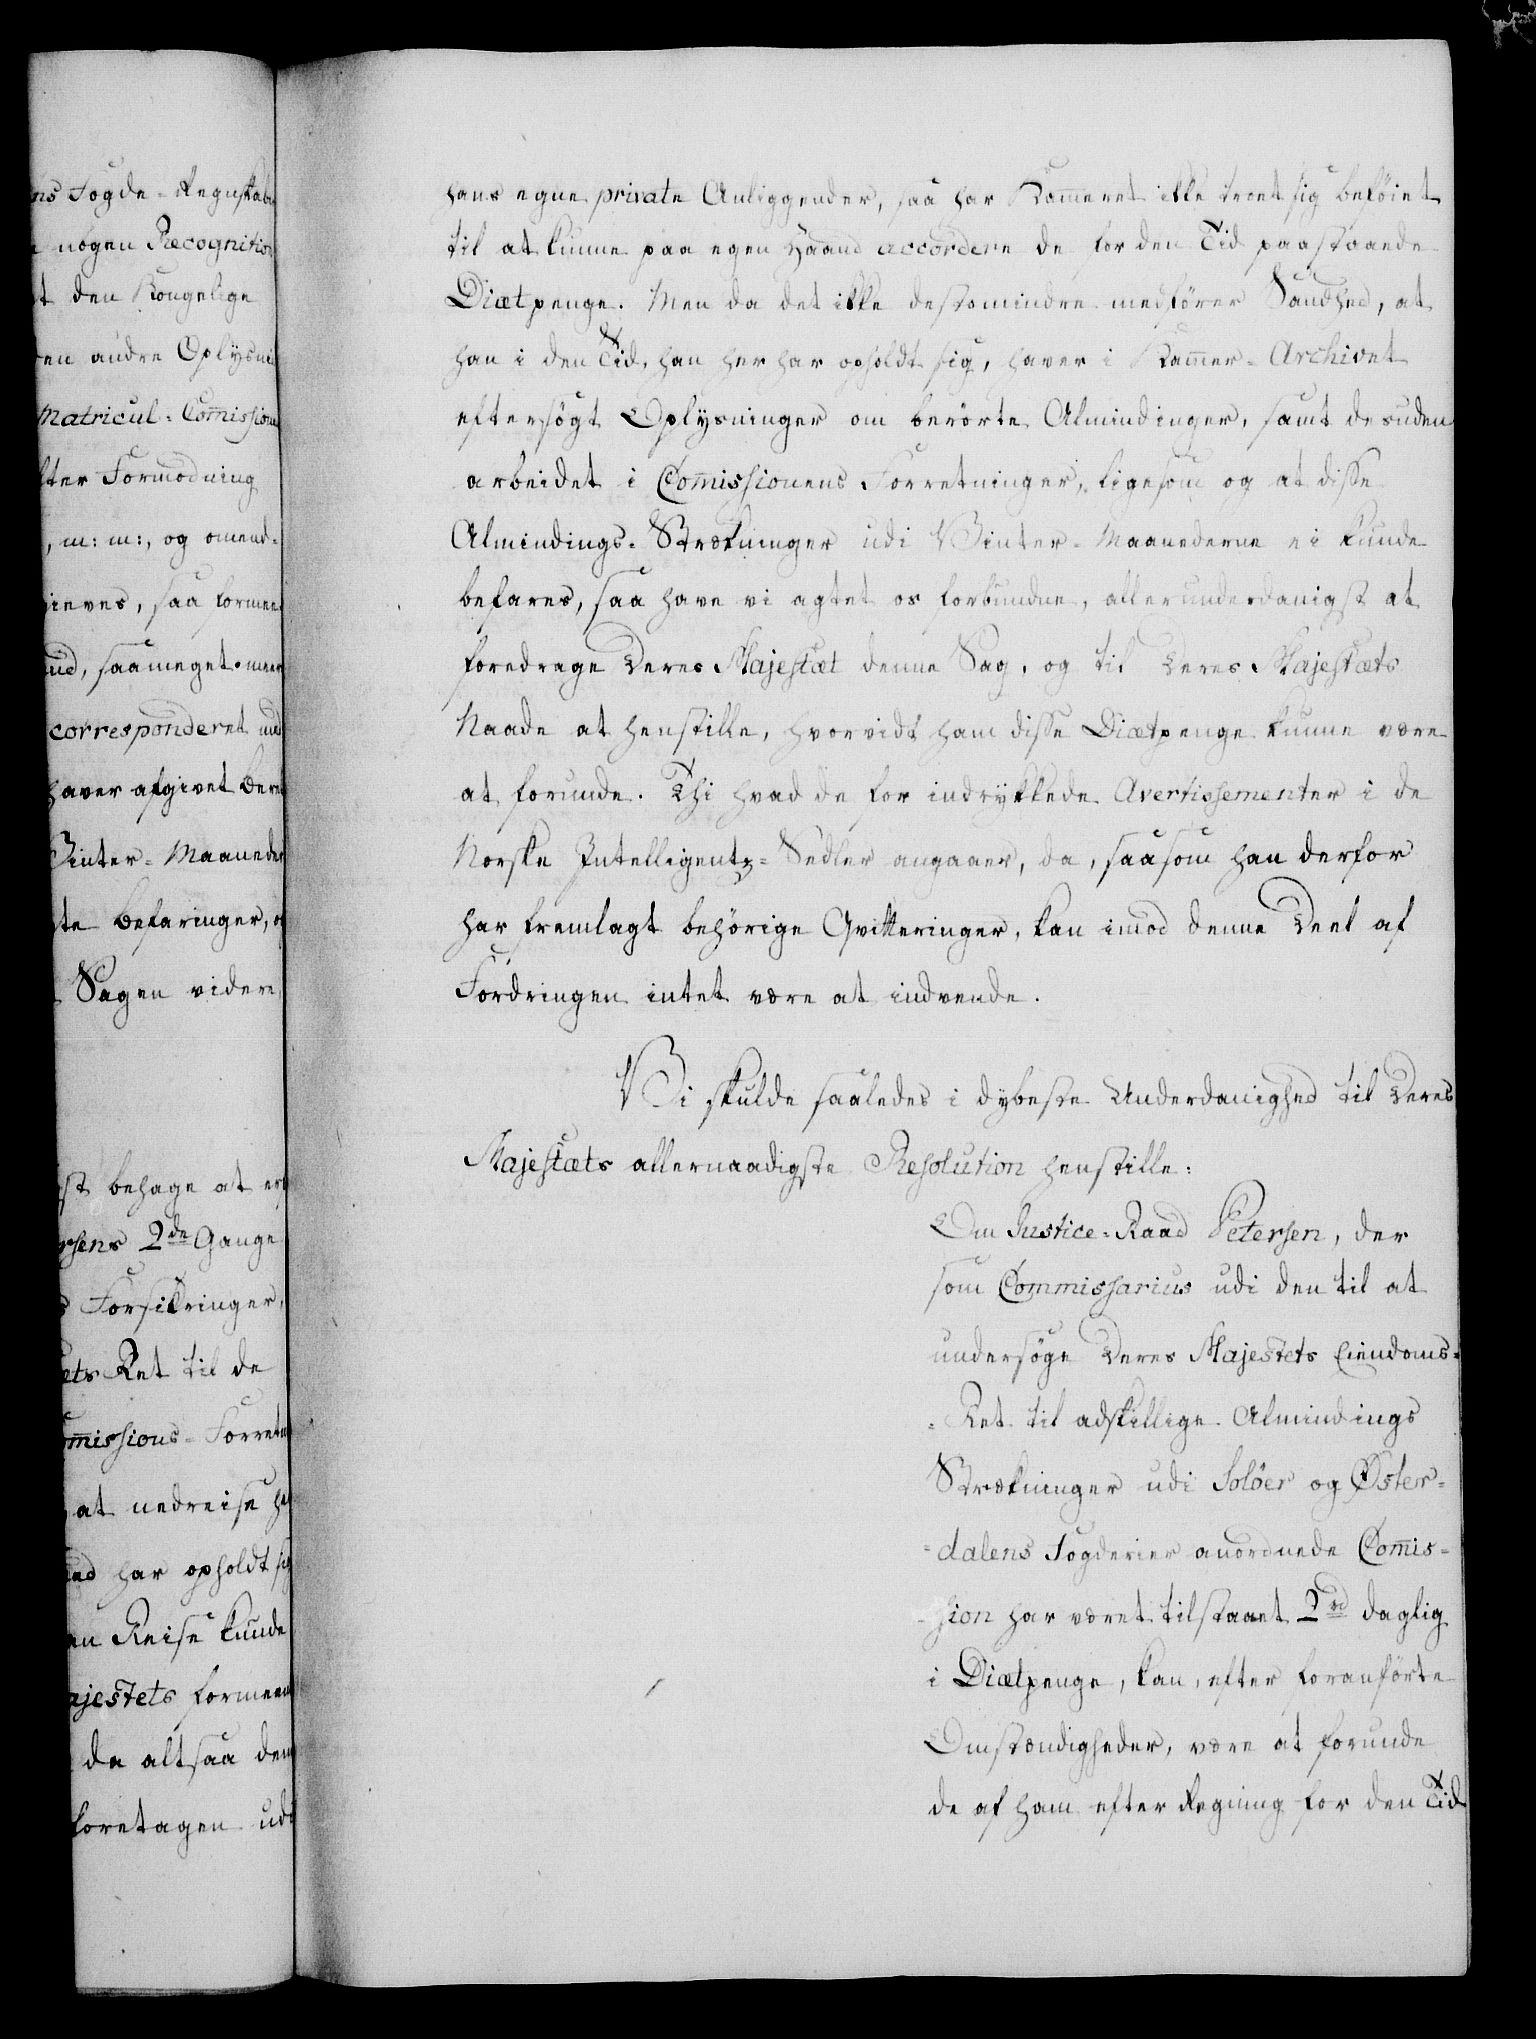 ns Fogde-Regnskab
nogen Recognition
t den Kongelige
en andre Oplysni
Matricul-Com̄ission
fter Formodning
, m: m:, og omend-
ieves, saa formee
ud, saameget meer
correspondert med
haver afgivet Bere
Vinter-Maaneder
ste Befaringer, og
Sagen videre
st behage at er
rsens 2de Gange
s Forsikringer,
ets Ret til de
om̄issions-Forretn
at nedreise he
ed har opholdt sig
en Reise kunde
ajestets formeen
da altsaa den
foretagen udi
hans egne private Anliggender, saa har Kam̄eret ikke troet sig beføiet
til at kunne paa egen Haand accordere de for den Tid paastaaende
Diætpenge. Men da det ikke destomindre medfører Sandhed, at
han i den Tid, han her har opholdt sig, haver i Kam̄er-Archivet
eftersøgt Oplysninger om berørte Almindinger, samt desuden
arbeidet i Com̄issionens Forretninger, ligesom og at disse
Almindings-Strækninger udi Vinter-Maanederne ei kunde
befares, saa have vi agtet os forbundne, allerunderdanigst at
foredrage Deres Majestæt denne Sag, og til Deres Majestæts
Naade at henstille, hvorvidt ham disse Diætpenge kunne være
at forunde. Thi hvad de for indrykkede Avertissementer i de
Norske Intelligentz-Sedler angaaer, da, saasom han derfor
har fremlagt behørige Qvitteringer, kan imod denne Deel af
Fordringen intet være at indvende.
Vi skulde saaledes i dybeste Underdanighed til Deres
Majestæts allernaadigste Resolution henstille:
Om Justice-Raad Petersen, der
som Commissarius udi den til at
undersøge Deres Majestets Eiendoms-
-Ret til adskillige Almindings
Strækninger udi Soløer og Øster-
-dalens Fogderier anordnede Com̄is-
-sion har været tilstaaet 2rd daglig
i Diætpenge, kan, efter foranførte
Omstændigheder, være at forunde
de af ham efter Regning for den Tid